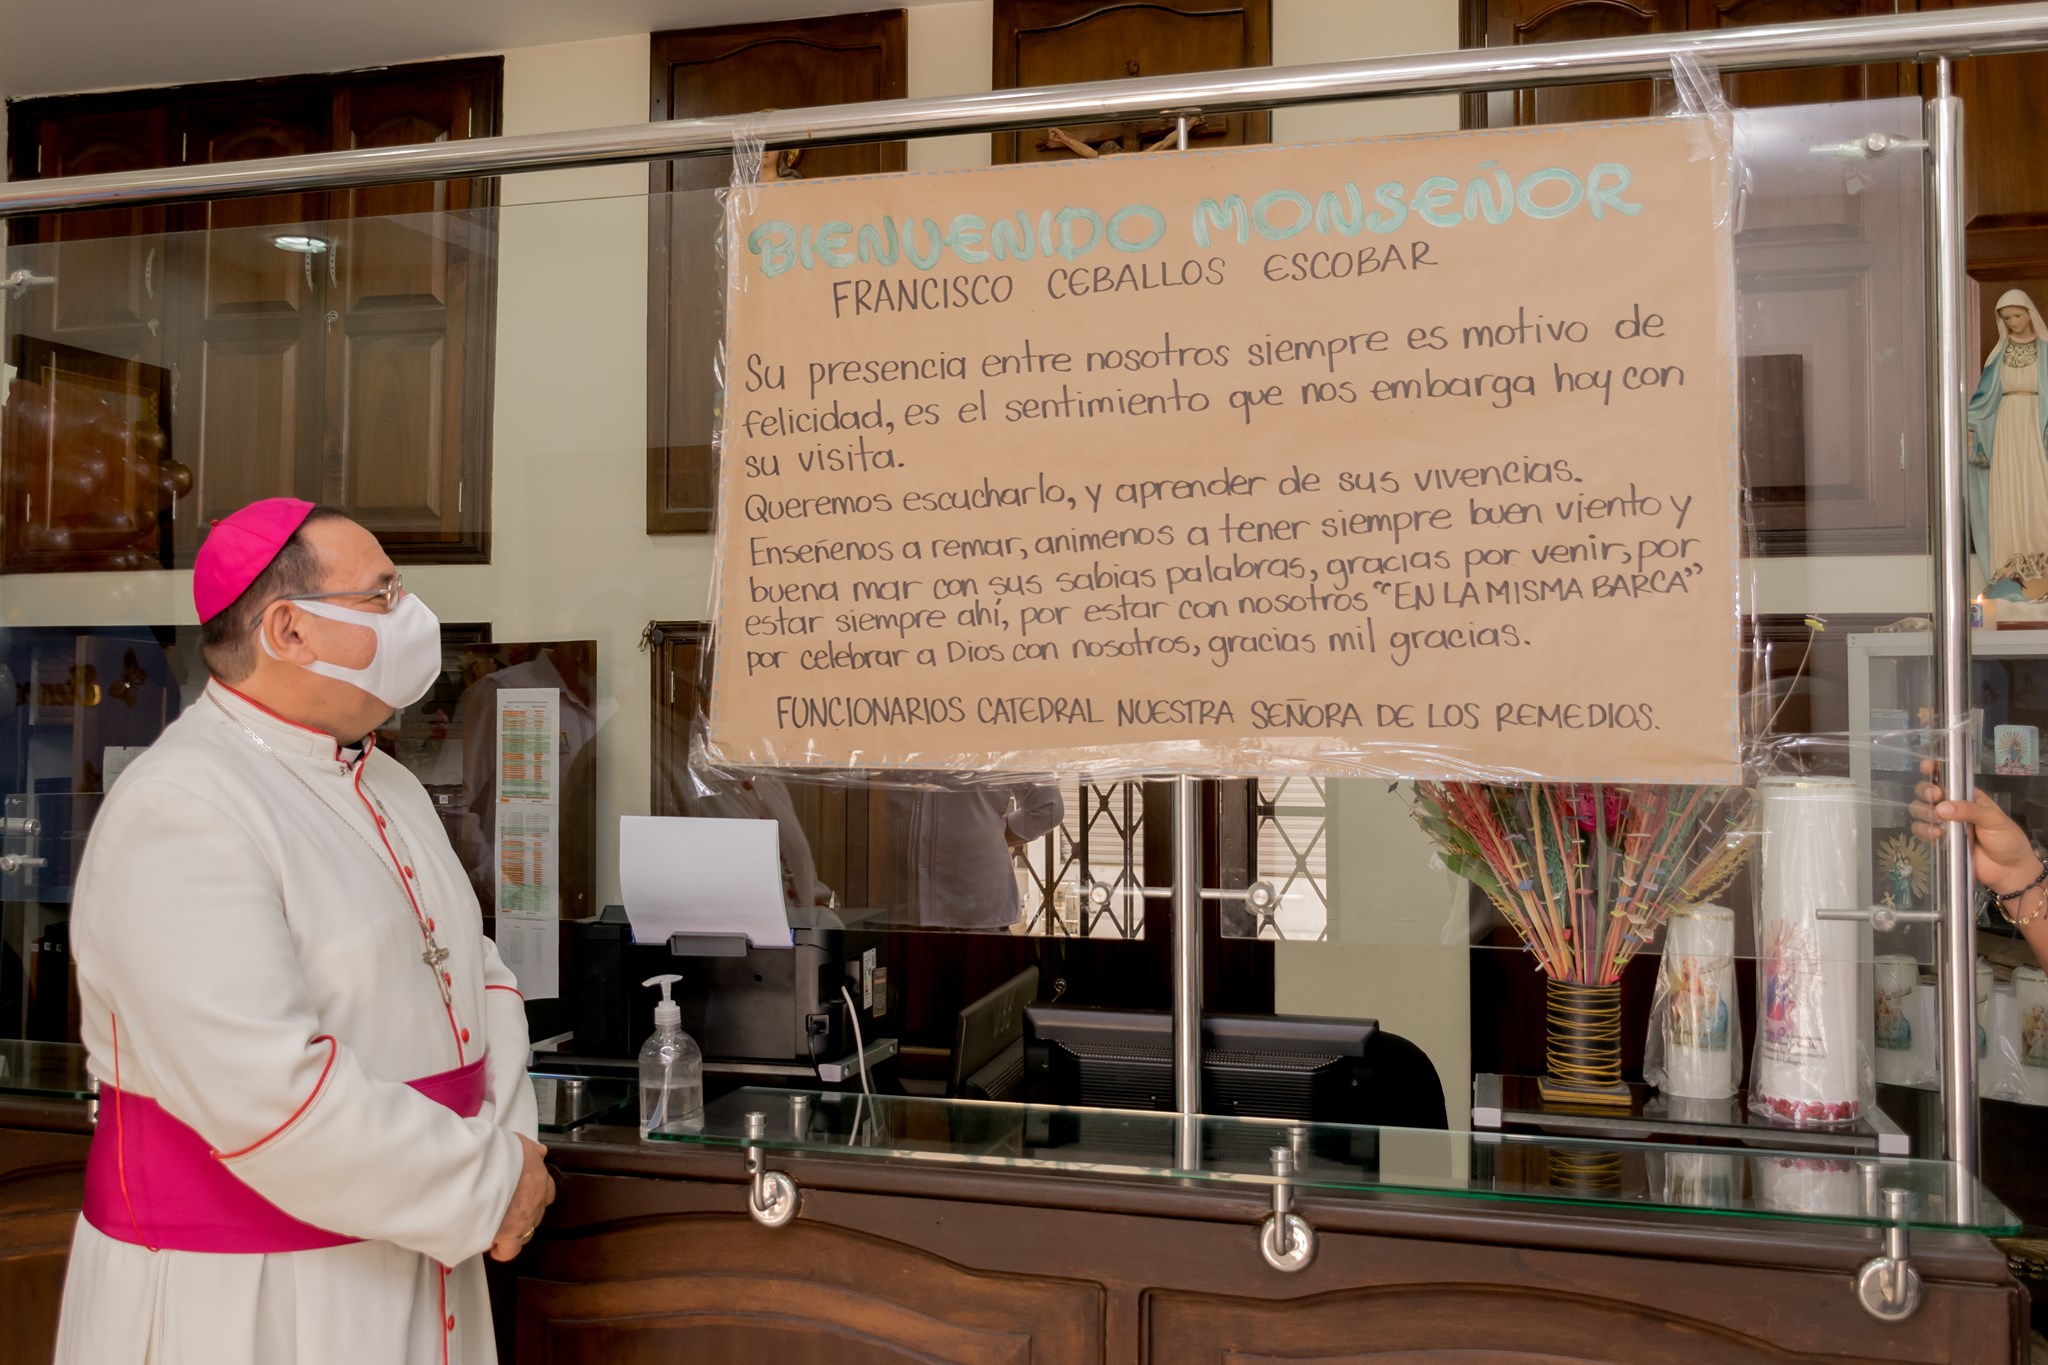 BIENVENIDO MONSEÑOR
FRANCISCO CEBALLOS ESCOBAR
Su presencia entre nosotros siempre es motivo de
felicidad, es el sentimiento que nos embarga hoy con
su visita.
Queremos escucharlo, y aprender de sus vivencias.
Enseñenos a remar, animenos a tener siempre buen viento y
buena mar con sus sabias palabras, gracias por venir, por
estar siempre ahí, por estar con nosotros "EN LA MISMA BARCA"
por celebrar a Dios con nosotros, gracias mil gracias.
FUNCIONARIOS CATEDRAL NUESTRA SEÑORA DE LOS REMEDIOS.